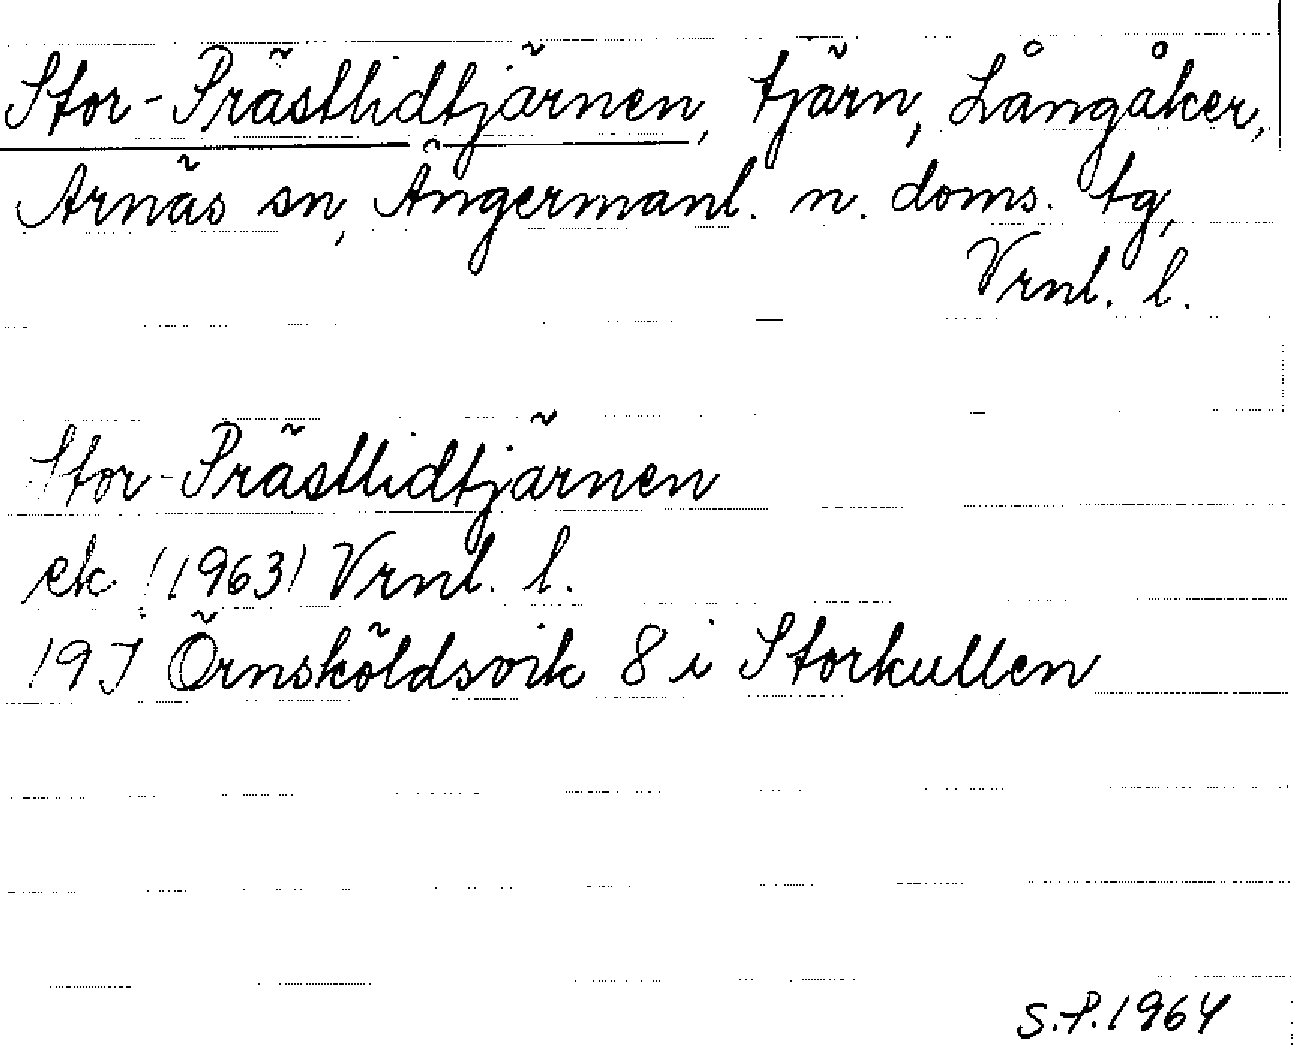 Stor-Prästlidtjärnen, tjärn, Långåker,
Arnäs sn, Ångermanl. n. doms. tg,
Vrnl. l.
Stor-Prästlidtjärnen
ek (1963) Vrnl. l.
19J Örnsköldsvik 8 i Storkullen
S.P. 1964